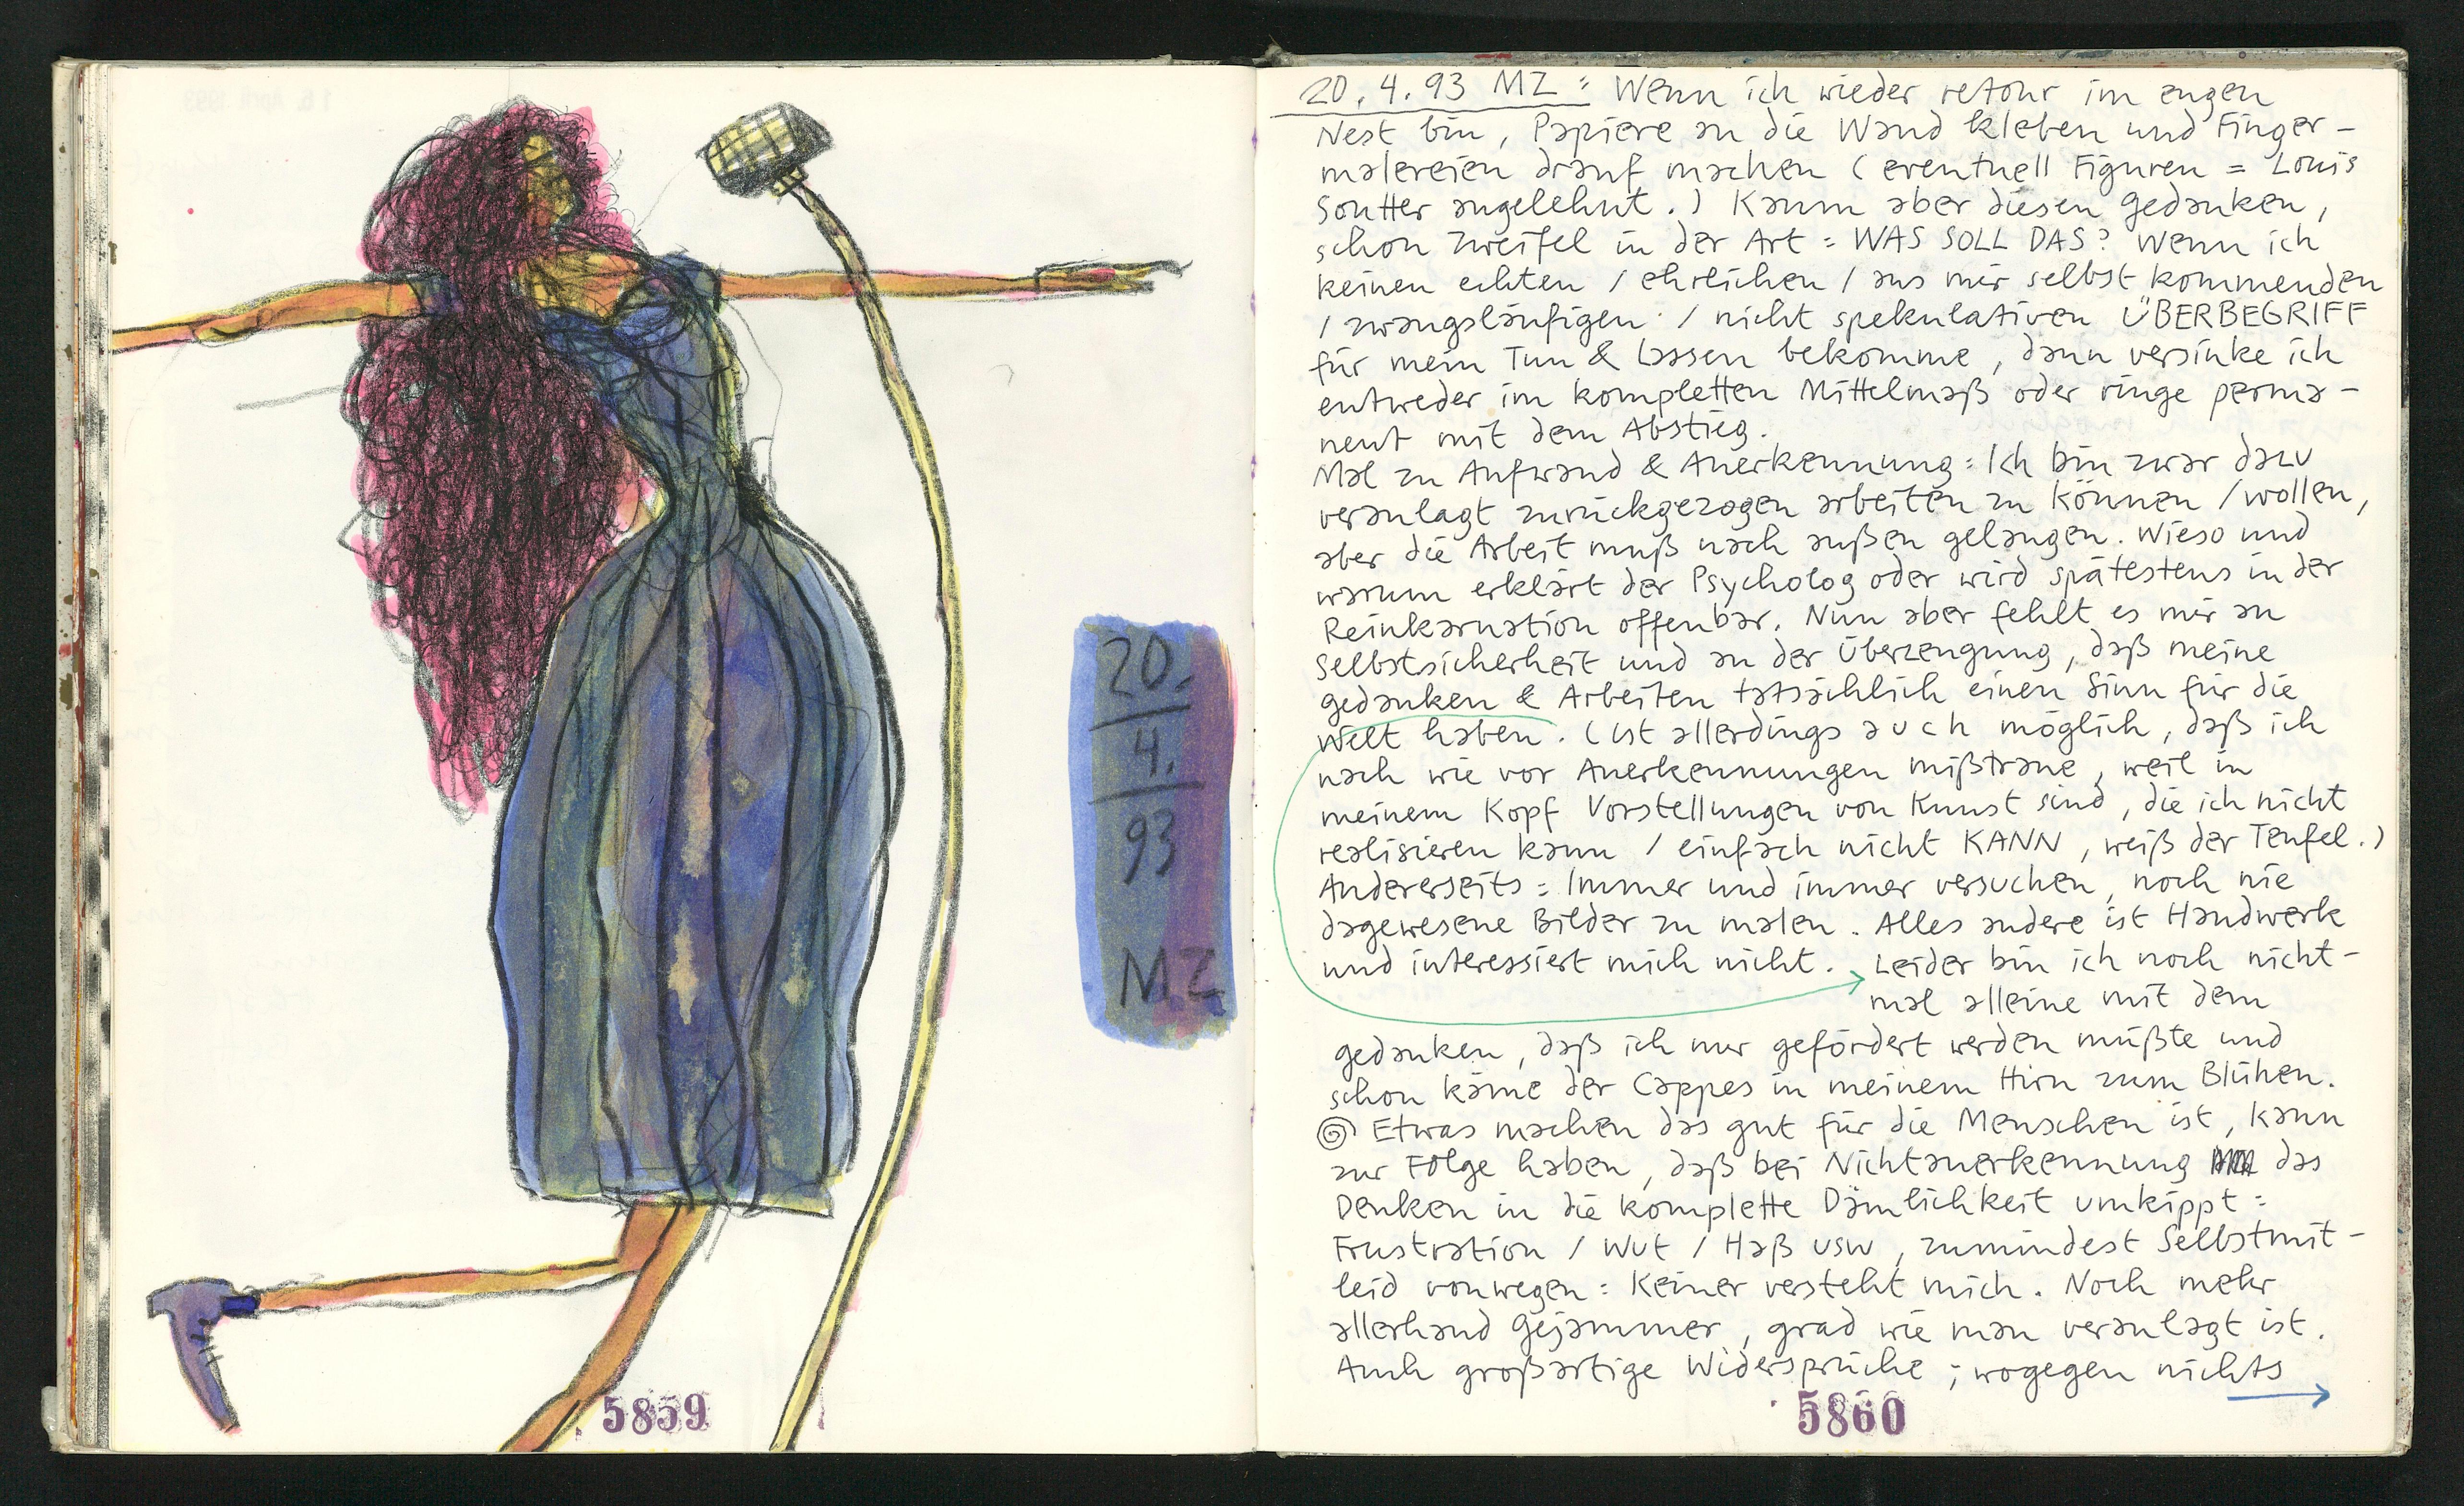 20.
4.
93
MZ
5859
20.4.93 MZ: Wenn ich wieder retour im engen
Nest bin, Papiere an die Wand kleben und Finger-
malereien drauf machen (eventuell Figuren = Louis
Soutter angelehnt.) Kaum aber diesen Gedanken,
schon Zweifel in der Art: WAS SOLL DAS? Wenn ich
keinen echten / ehrlichen / aus mir selbst kommenden
/ zwangsläufigen / nicht spekulativen ÜBERBEGRIFF
für mein Tun & Lassen bekomme, dann versinke ich
entweder im kompletten Mittelmaß oder ringe perma-
nent mit dem Abstieg.
Mal zu Aufwand & Anerkennung: Ich bin zwar dazu
veranlagt zurückgezogen arbeiten zu können / wollen,
aber die Arbeit muß nach außen gelangen. Wieso und
warum erklärt der Psycholog oder wird spätestens in der
Reinkarnation offenbar. Nun aber fehlt es mir an
Selbstsicherheit und an der Überzeugung, daß meine
Gedanken & Arbeiten tatsächlich einen Sinn für die
Welt haben. (Ist allerdings auch möglich, daß ich
nach wie vor Anerkennungen mißtraue, weil in
meinem Kopf Vorstellungen von Kunst sind, die ich nicht
realisieren kann / einfach nicht KANN, weiß der Teufel.)
Andererseits: Immer und immer versuchen, noch nie
dagewesene Bilder zu malen. Alles andere ist Handwerk
und interessiert mich nicht. Leider bin ich noch nicht-
mal alleine mit dem
Gedanken, daß ich nur gefördert werden müßte und
schon käme der Cappes in meinem Hirn zum Blühen.
Etwas machen das gut für die Menschen ist, kann
zur Folge haben, daß bei Nichtanerkennung das
Denken in die komplette Dämlichkeit umkippt:
Frustration / Wut / Haß usw, zumindest Selbstmit-
leid vonwegen: Keiner versteht mich. Noch mehr
allerhand Gejammer, grad wie man veranlagt ist.
Auch großartige Widersprüche; wogegen nichts
5860